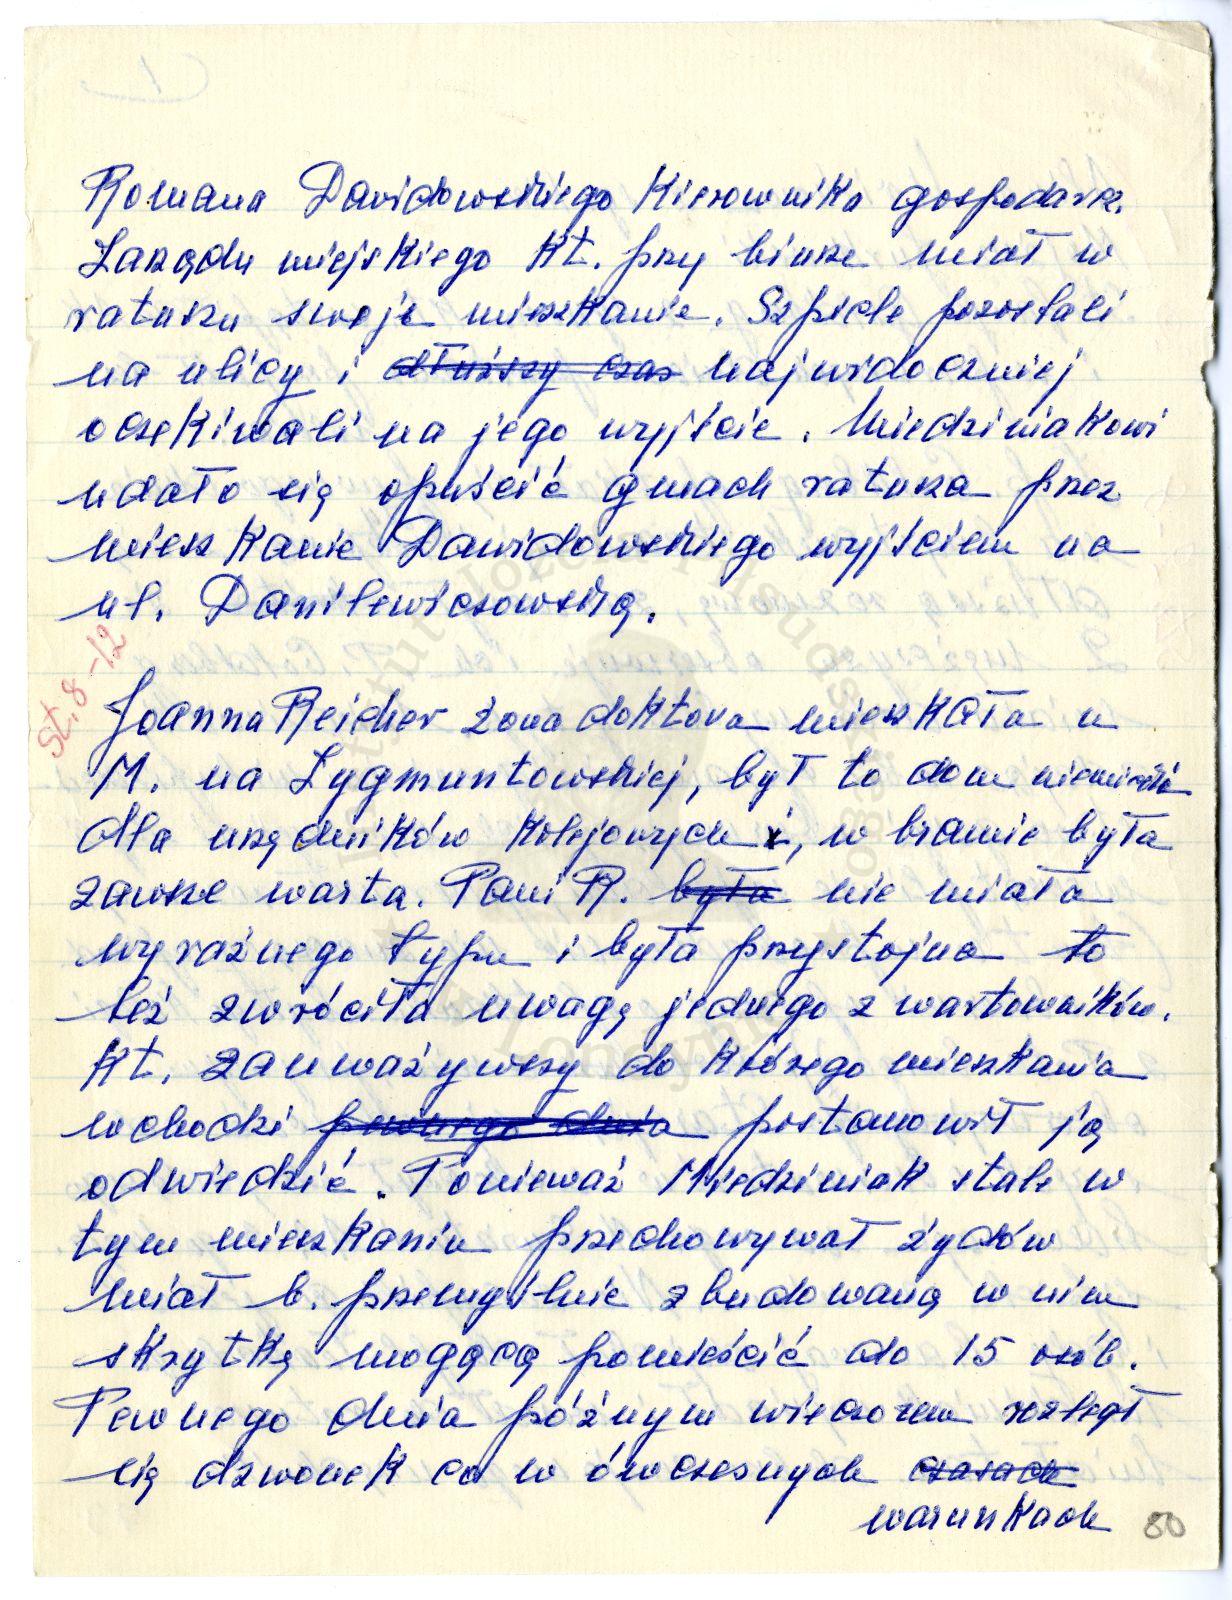 Romana Dawidowskiego Kierownika gospodarcz.
Zarządu miejskiego kt. przy biurze miał w
ratuszu swoje mieszkanie. Szpicle pozostali
na ulicy i dłuższy czas najwidoczniej
oczekiwali na jego wyjście. Miedziniakowi
udało się opuścić gmach ratusza przez
mieszkanie Dawidowskiego wyjściem na
ul. Daniłewiczowską.
St. 8 -12
Joanna Reicher żona doktora mieszkała u
M. na Zygmuntowskiej, był to dom niemiecki
dla urzędników kolejowych i, w bramie była
zawsze warta. Pani R. była nie miała
wyraźnego typu i była przystojna to
też zwróciła uwagę jednego z wartowników.
kt. zauważywszy do którego mieszkania
wchodzi pewnego dnia postanowił ją
odwiedzić. Ponieważ Miedziniak stale w
tym mieszkaniu przechowywał żydów
miał b. przemyślnie zbudowaną w nim
skrytkę mogącą pomieścić do 15 osób.
Pewnego dnia późnym wieczorem rozległ
się dzwonek co w ówczesnych czasach
warunkach
80
Instytut Józefa Piłsudskiego
Londyn